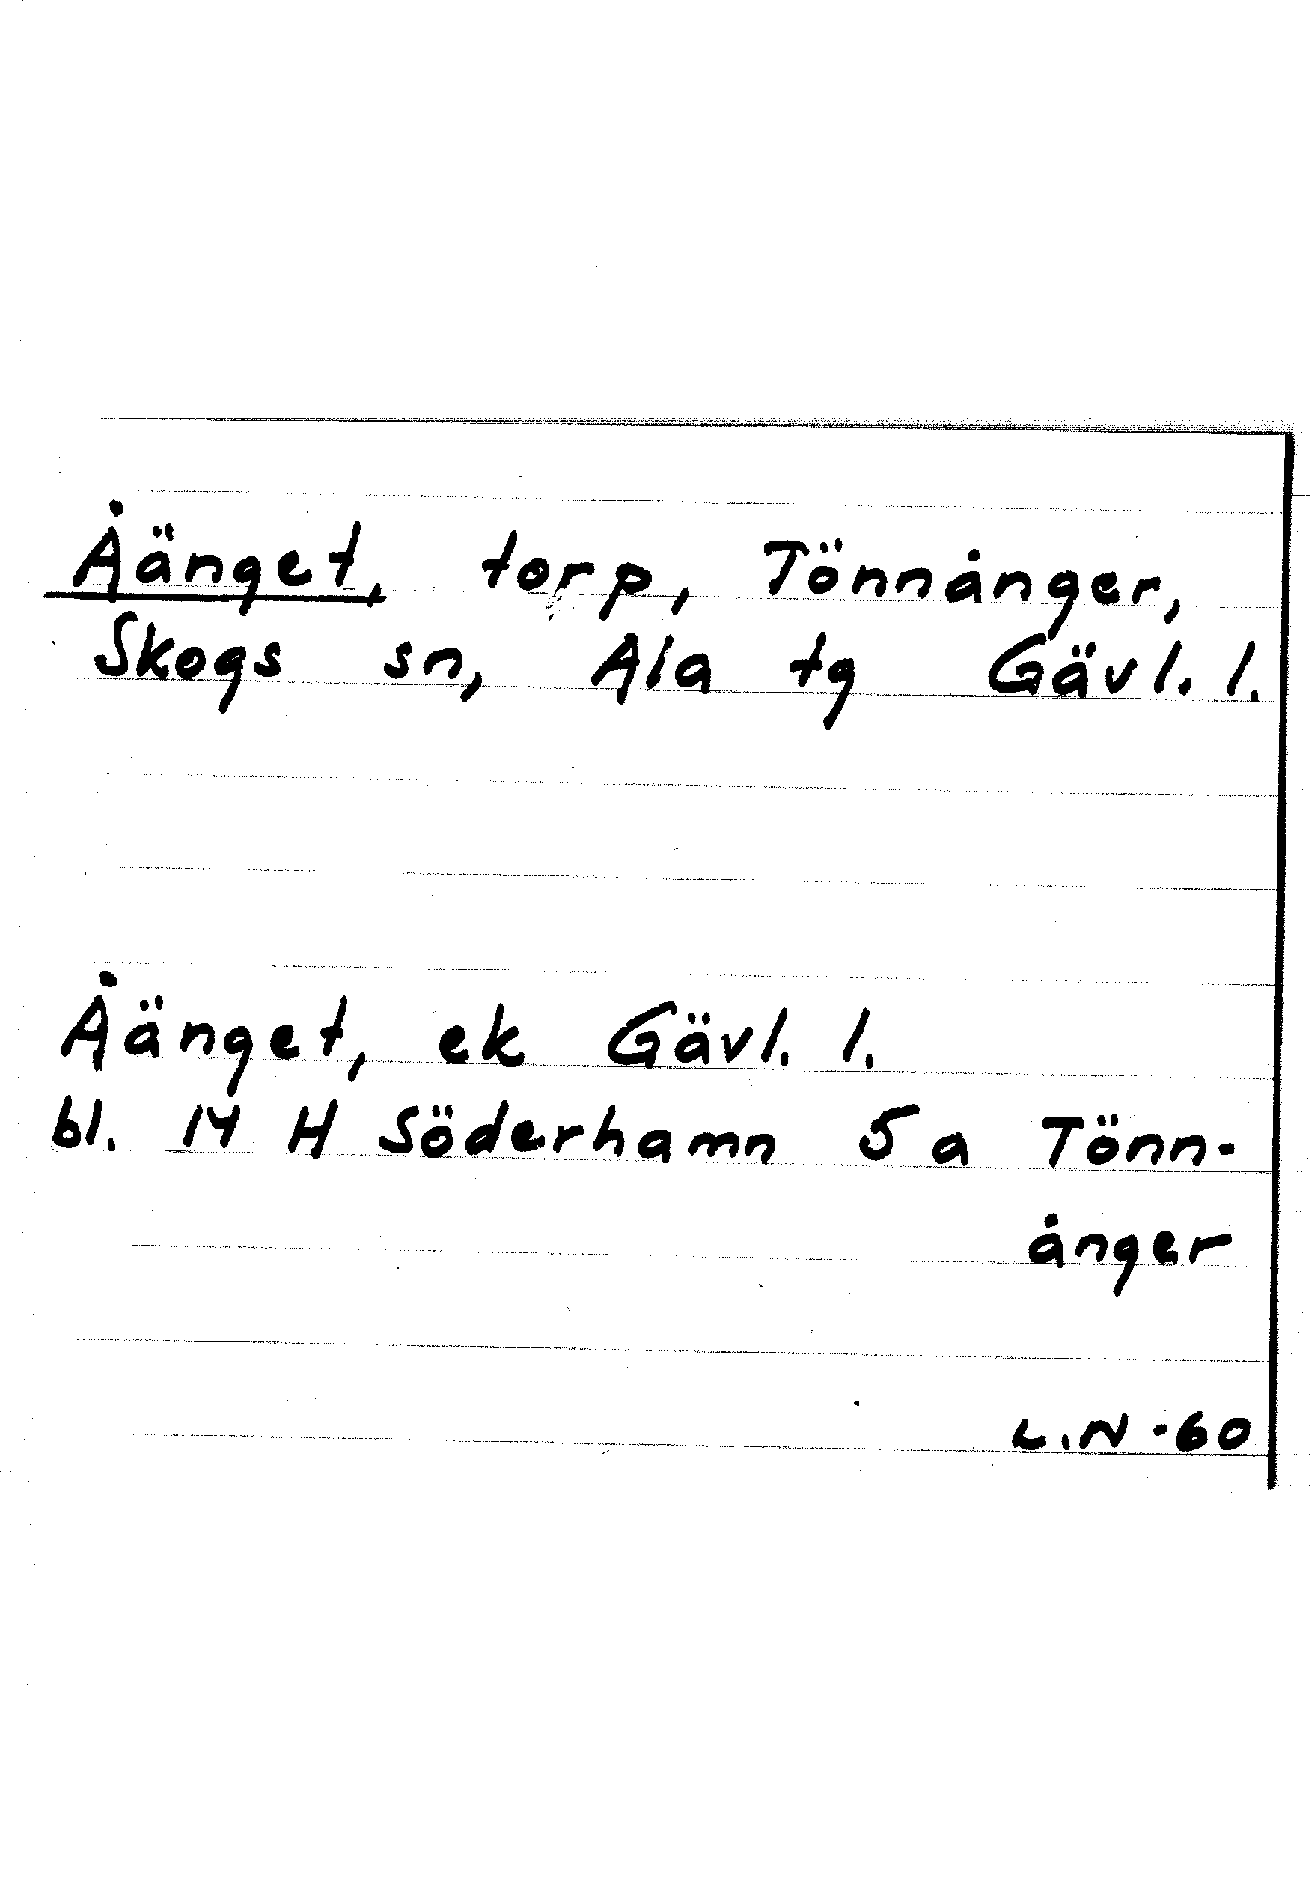 Åänget, torp, Tönnånger,
Skogs sn, Ala tg Gävl. l.
Åänget, ek Gävl. l.
bl. 14 H Söderhamn 5 a Tönn-
ånger
L.N -60